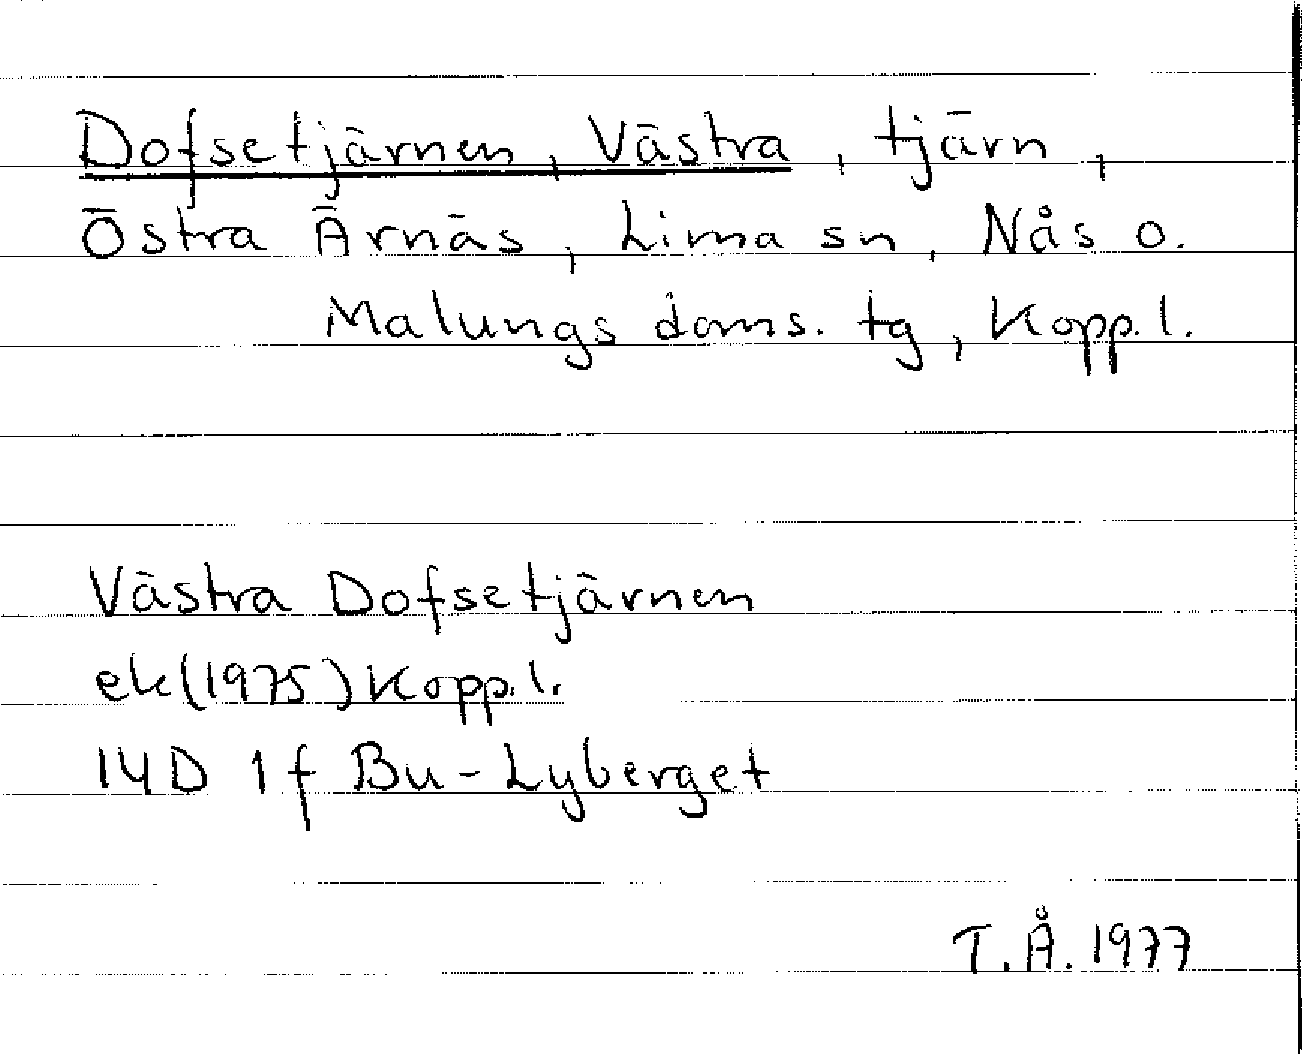 Dofsetjärnen, Västra, tjärn,
Östra Ärnäs, Lima sn, Nås o.
Malungs doms. tg, Kopp. l.
Västra Dofsetjärnen
ek(1975) Kopp. l.
14D 1f Bu-Lyberget
T.Å. 1977